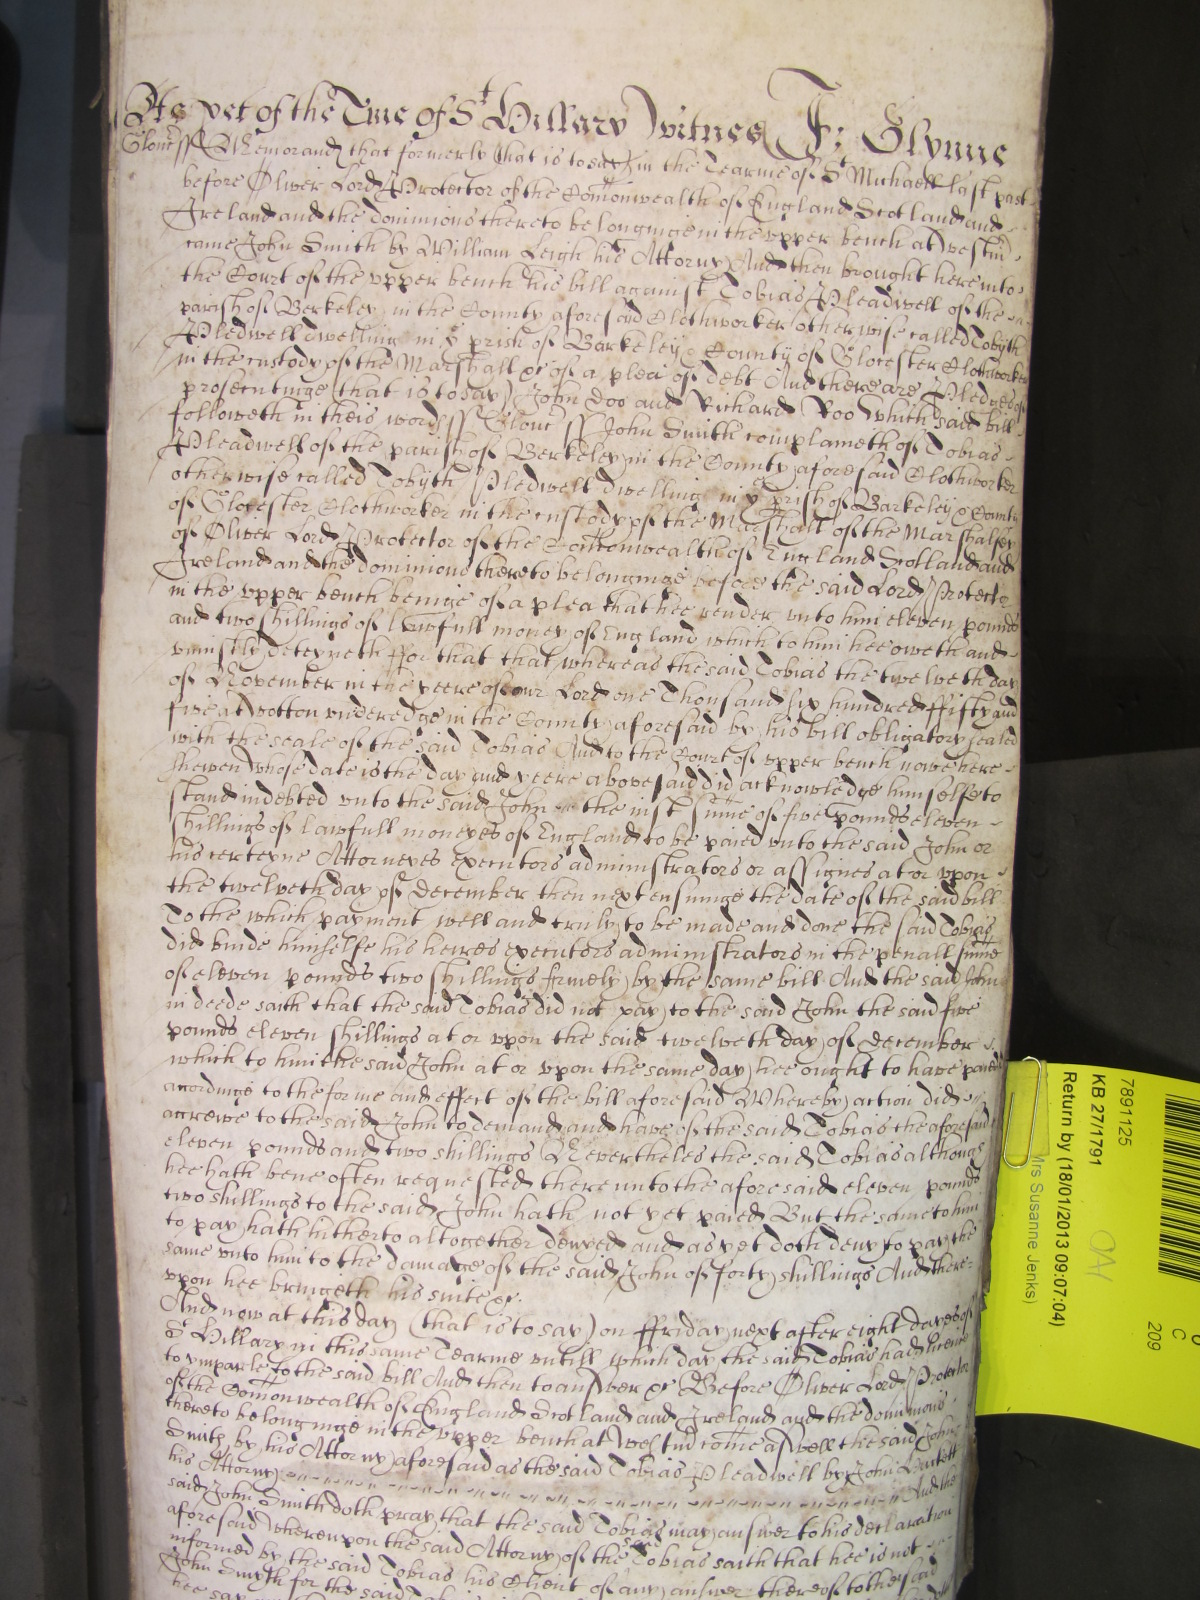 As yet of the Tme of St Hillary witnes J: Glynne
Glouc ss Memorand that formerly that is to say in the Tearme of St Michaell last past
before Oliver Lord Protector of the Comonwealth of England Scotland and
Ireland and the dominions thereto belonginge in the upper bench at westm
came John Smith by William Leigh his Attorny And then brought here into
the Court of the upper bench his bill against Tobias Pleadwell of the
parish of Berkeley in the County aforesaid Clothworker otherwise called Tobyth
Pledwell dwelling in ye prish of Barkeley & County of Glocester Clothworker
in the custody of the Marshall &c of a plea of debt And there are Pledges of
prosecutinge (that is to say) John Doo and Richard Roo which said bill
followeth in theis words ss Glouc ss John Smith complaineth of Tobias
Pleadwell of the parish of Berkeley in the County aforesaid Clothworker
otherwise called Tobyth Pledwell dwelling in ye prish of Barkeley & County
of Glocester Clothworker in the custody of the Marshall of the Marshalsey
of Oliver Lord Protector of the Comonwealth of England Scotland and
Ireland and the dominions thereto belonginge before the said Lord Protector
in the upper bench beinge of a plea that hee render unto him eleven pounds
and two shillings of lawfull money of England which to him hee oweth and
uniustly deteyneth ffor that that whereas the said Tobias the twelveth day
of November in the yeere of our Lord one Thousand six hundred ffifty and
five at wotton underedge in the County aforesaid by his bill obligatory sealed
with the seale of the said Tobias And to the Court of upper bench nowe here
shewen whose date is the day and yeere abovesaid did acknowledge himselfe to
stand indebted unto the said John in the iust sume of five pounds eleven
shillings of lawfull moneyes of England to be paied unto the said John or
his certeyne Attorneyes executors administrators or assignes at or upon
the twelveth day of December then next ensuinge the date of the said bill
To the which payment well and truly to be made and done the said Tobias
did binde himselfe his heires executors administrators in the penall sume
of eleven pounds two shillings firmely by the same bill And the said John
in deede saith that the said Tobias did not pay to the said John the said five
pounds eleven shillings at or upon the said twelveth day of December
which to him the said John at or upon the same day hee ought to have paied
accordinge to the forme and effect of the bill aforesaid Whereby action did
accrewe to the said John to demand and have of the said Tobias the aforesaid
eleven pounds and two shillings Nevertheles the said Tobias although
hee hath bene often requested thereunto the aforesaid eleven pounds
two shillings to the said John hath not yet paied But the same to him
to pay hath hitherto altogether denyed and as yet doth deny to pay the
same unto him to the damage of the said John of forty shillings And there-
upon hee bringeth his suite &c.
And now at this day (that is to say) on ffriday next after eight dayes of
St Hillary in this same Tearme untill which day the said Tobias had licence
to imparle to the said bill And then to answer &c Before Oliver Lord Protector
of the Comonwealth of England Scotland and Ireland and the dominions
thereto belonginge in the upper bench at westm come aswell the said John
Smith by his Attorny aforesaid as the said Tobias Pleadwell by John
his Attorny And the
said John Smith doth pray that the said Tobias may answer to his declaration
aforesaid whereupon the said Attorny of the said Tobias saith that hee is not
informed by the said Tobias his Client of any answer thereof to the said
John Smyth for the said
hee say
7891125
KB 27/1791
Return by (18/01/2013 09:07:04)
Mrs Susanne Jenks)
C
209